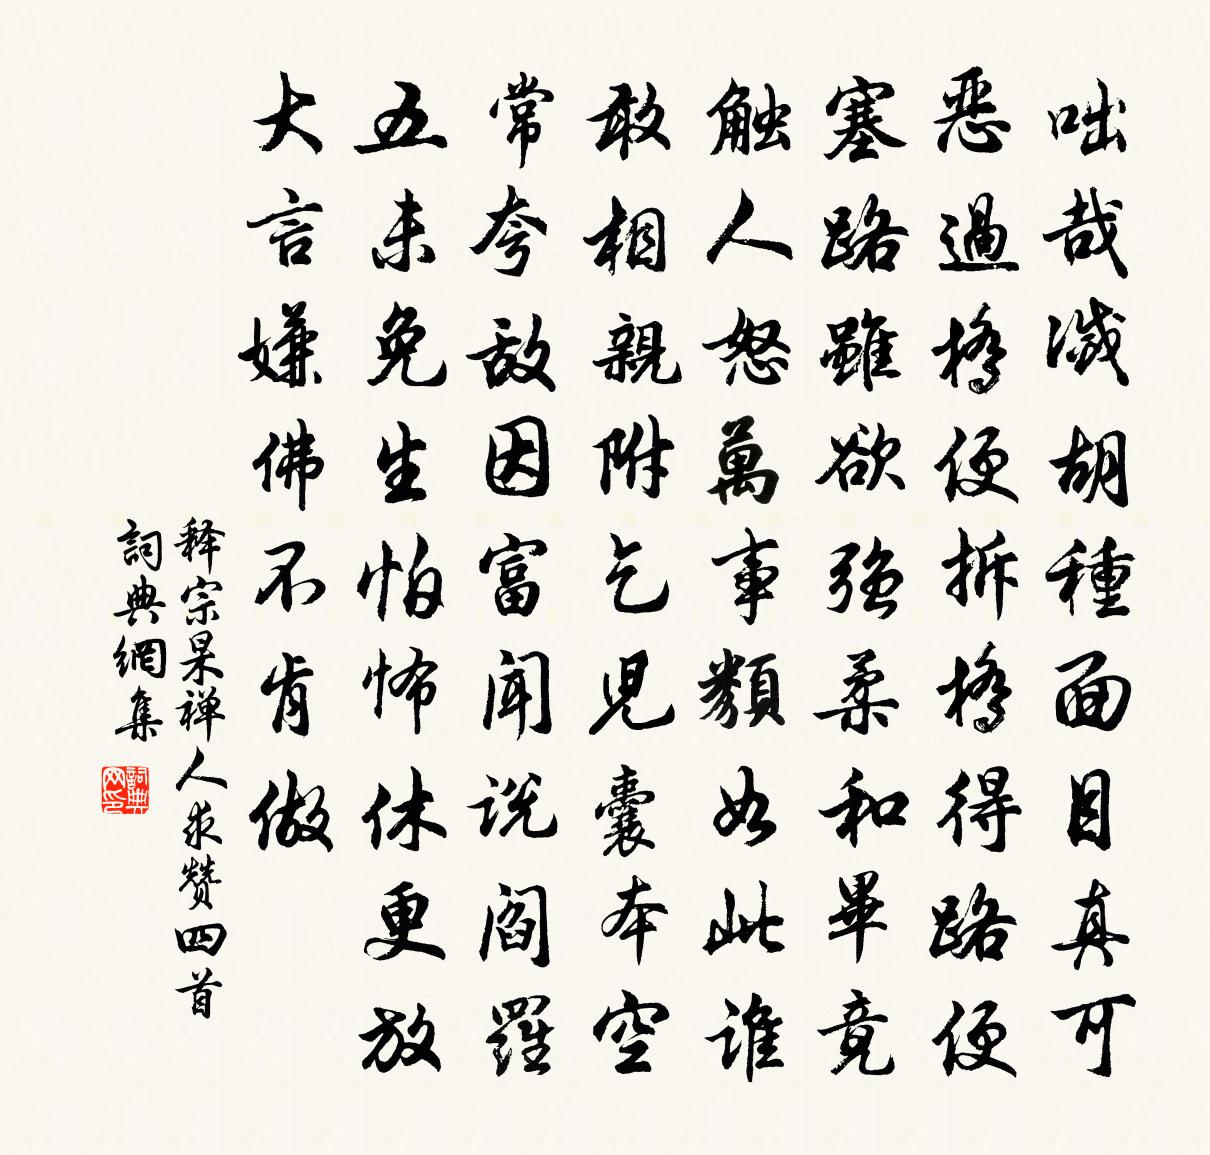 咄哉滅胡種面目真可
恶過橋便拆橋得路便
塞路雖欲强柔和畢竟
触人怒萬事類如此谁
敢相親附乞児囊本空
常夸敌因富聞说阎羅
五未免生怕怖休更放
大言嫌佛不肯做
释宗杲禅人求赞四首
詞典網集
詞典网印